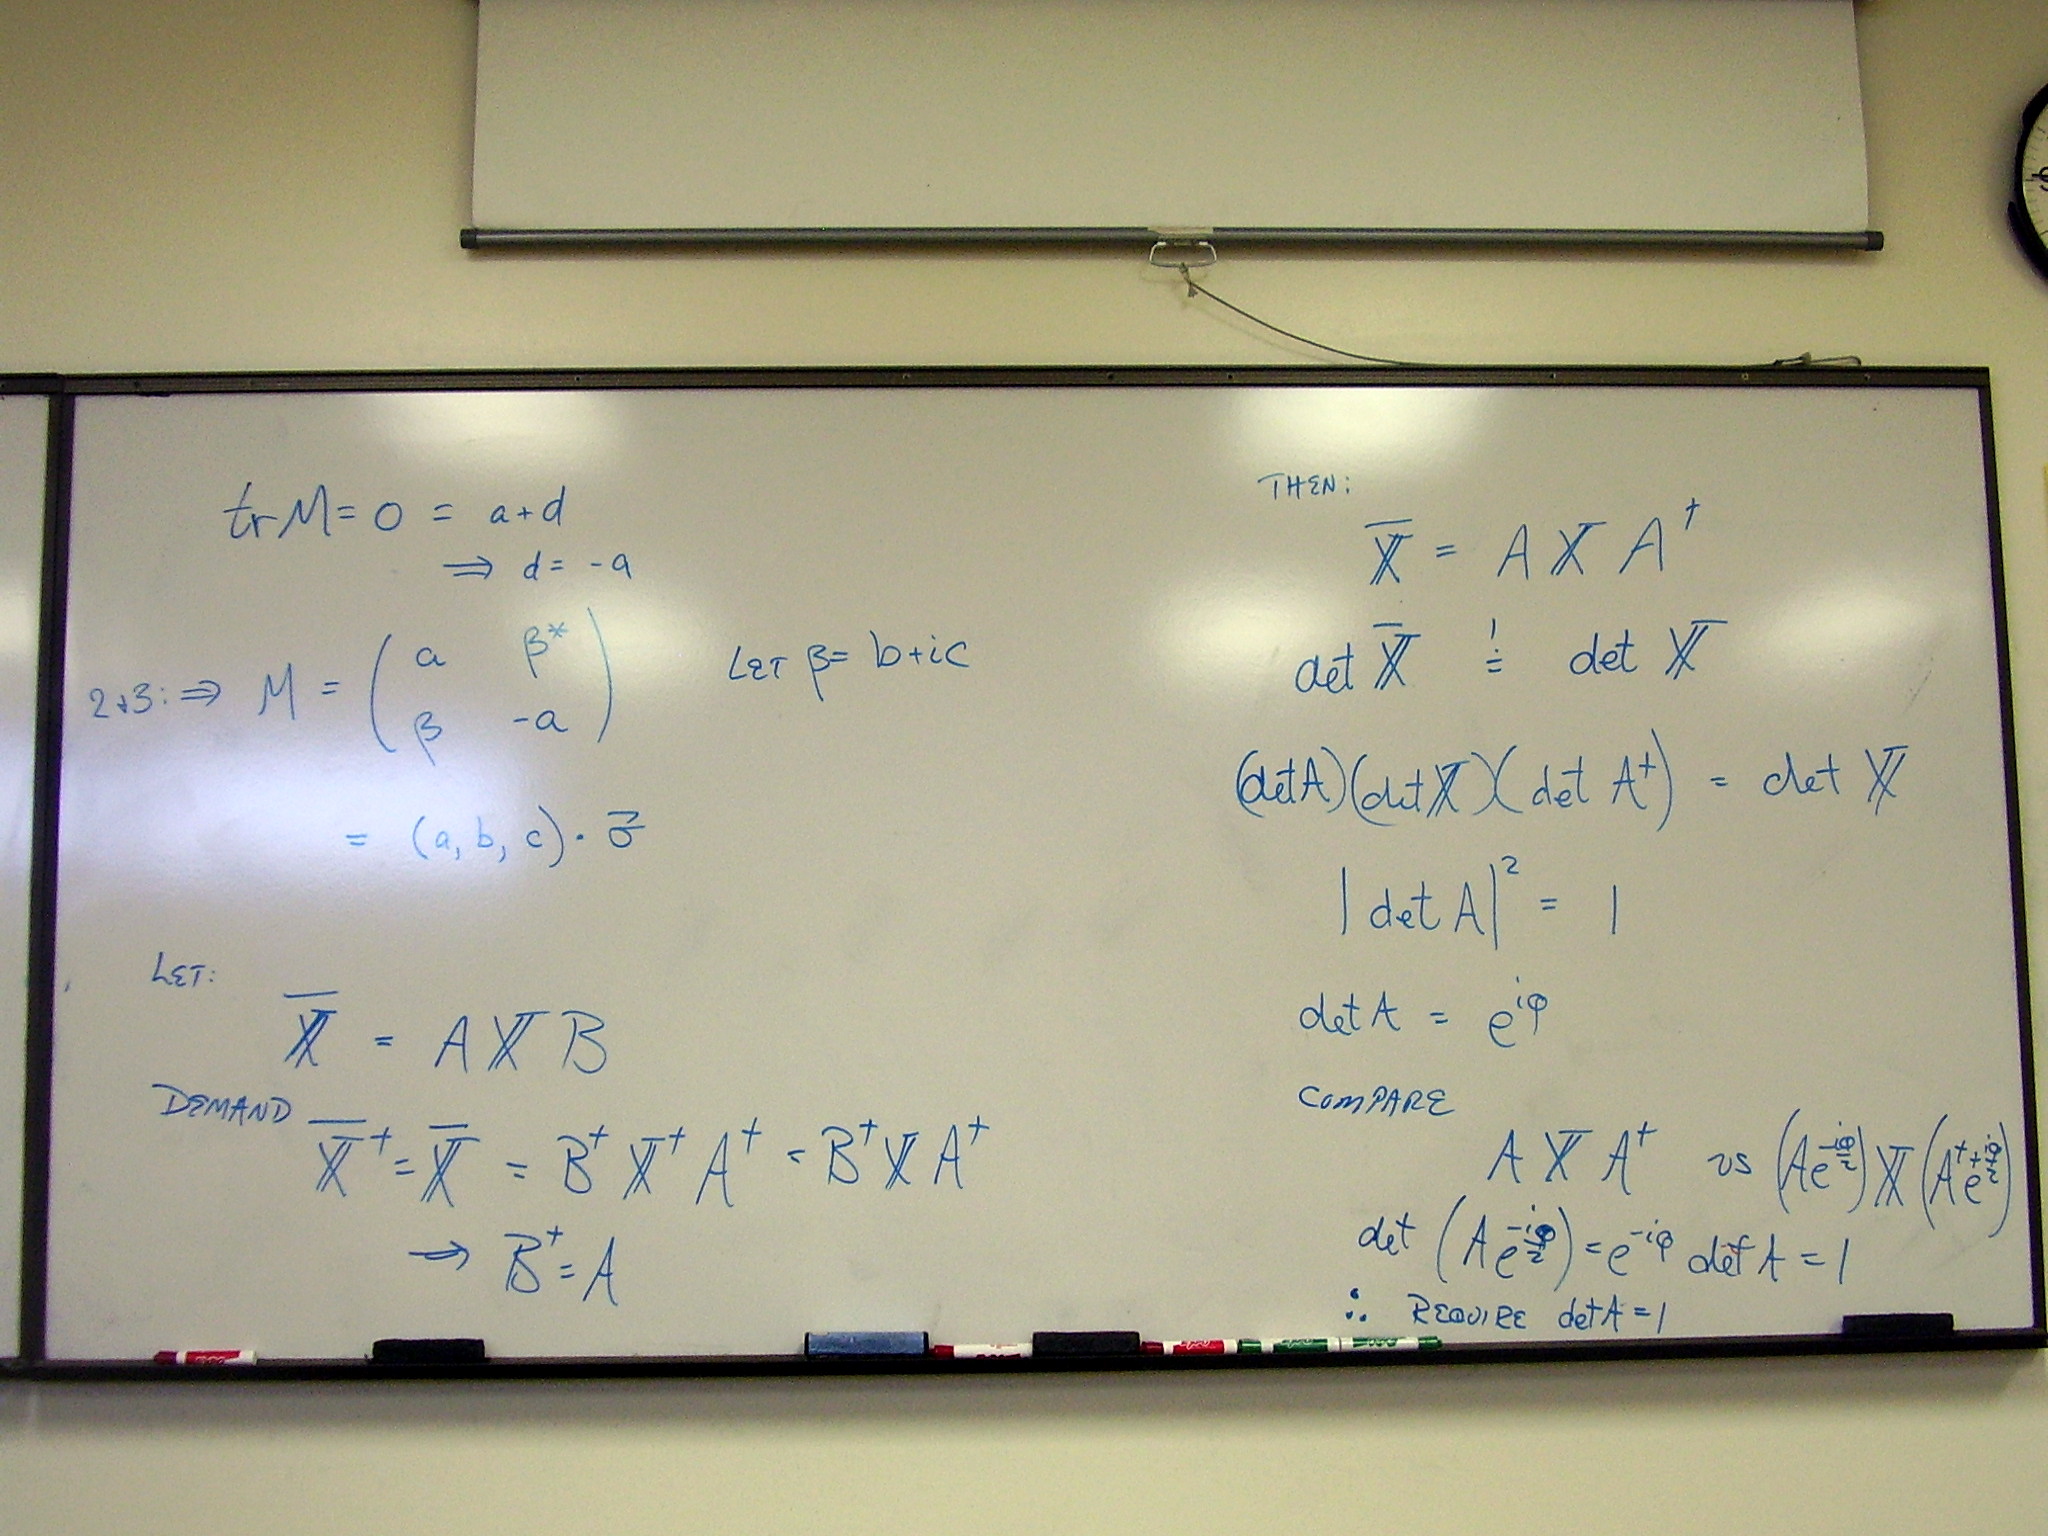 tr M = 0 = a+d
⇒ d = -a
2+3: ⇒ M = ( a β* ) LET β = b+ic
( β -a )
= (a, b, c) · σ⃗
LET:
X̅ = A X B
DEMAND
X̅† = X̅ = B† X† A† = B† X A†
⇒ B† = A
THEN:
X̅ = A X A†
det X̅ =! det X
(det A)(det X)(det A†) = det X
|det A|² = 1
det A = e^{iφ}
COMPARE
A X A† vs (A e^{-iφ/2}) X (A† e^{+iφ/2})
det (A e^{-iφ/2}) = e^{-iφ} det A = 1
∴ REQUIRE det A = 1